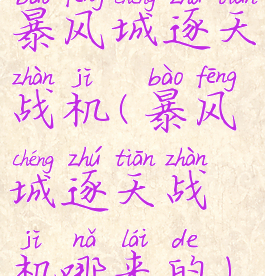 bào fēng chéng zhú tiān
暴风城逐天
zhàn jī bào fēng
战机(暴风
chéng zhú tiān zhàn
城逐天战
jī nǎ lái de
机哪来的)